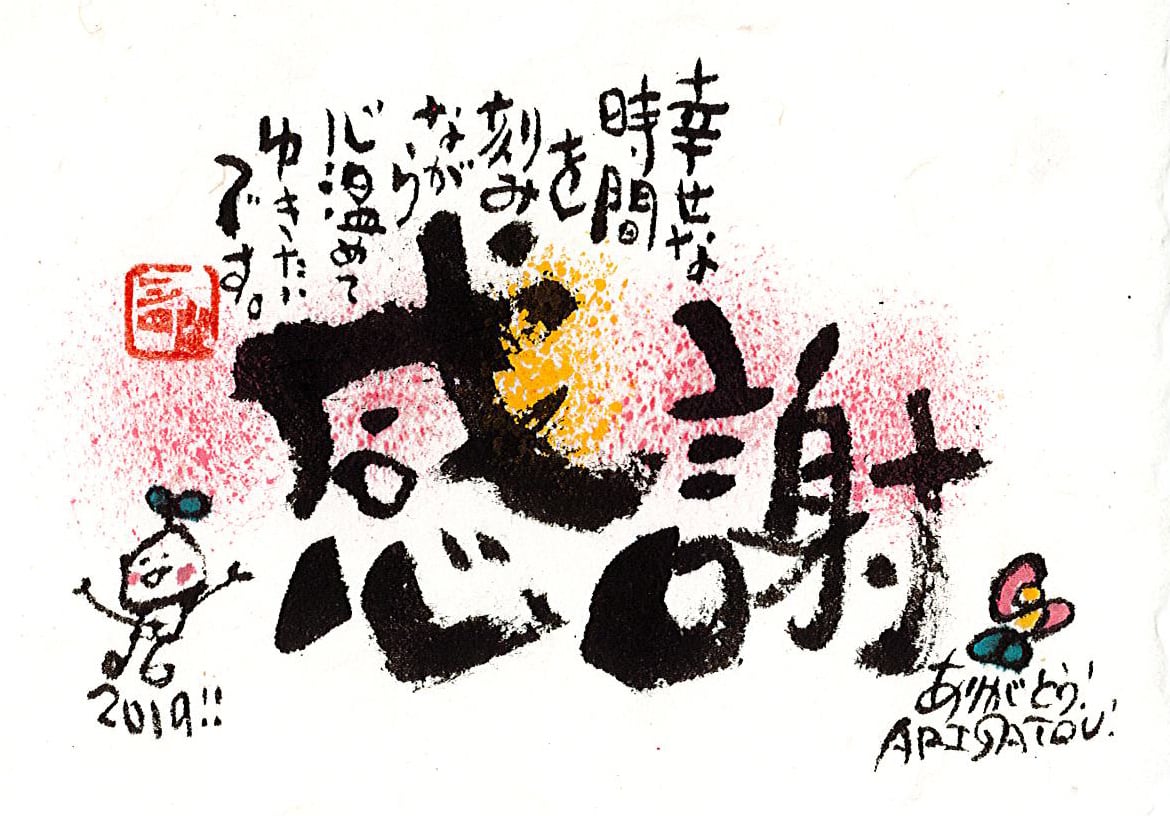 幸せな
時間
を
刻み
なが
ら
心温めて
ゆきたい
です。
感謝
2019!!
ありがとう!
ARIGATOU!